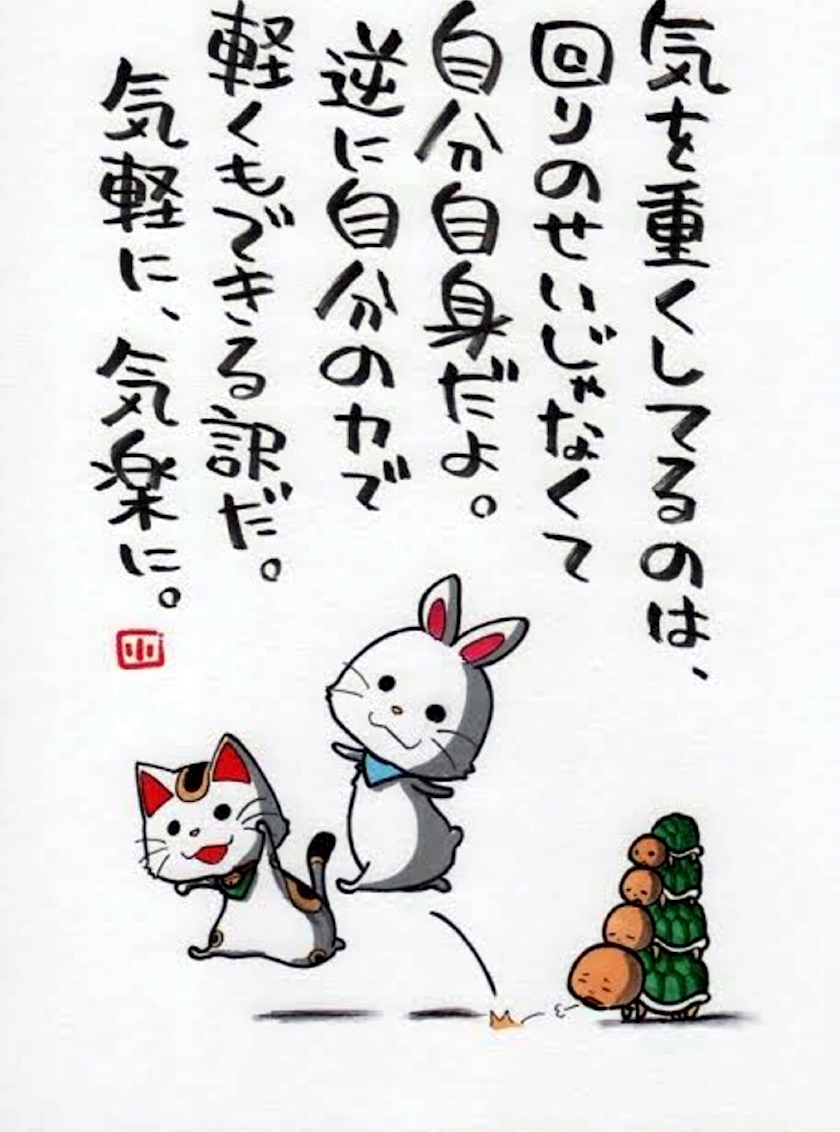 気を重くしてるのは、
回りのせいじゃなくて
自分自身だよ。
逆に自分の力で
軽くもできる訳だ。
気軽に、気楽に。